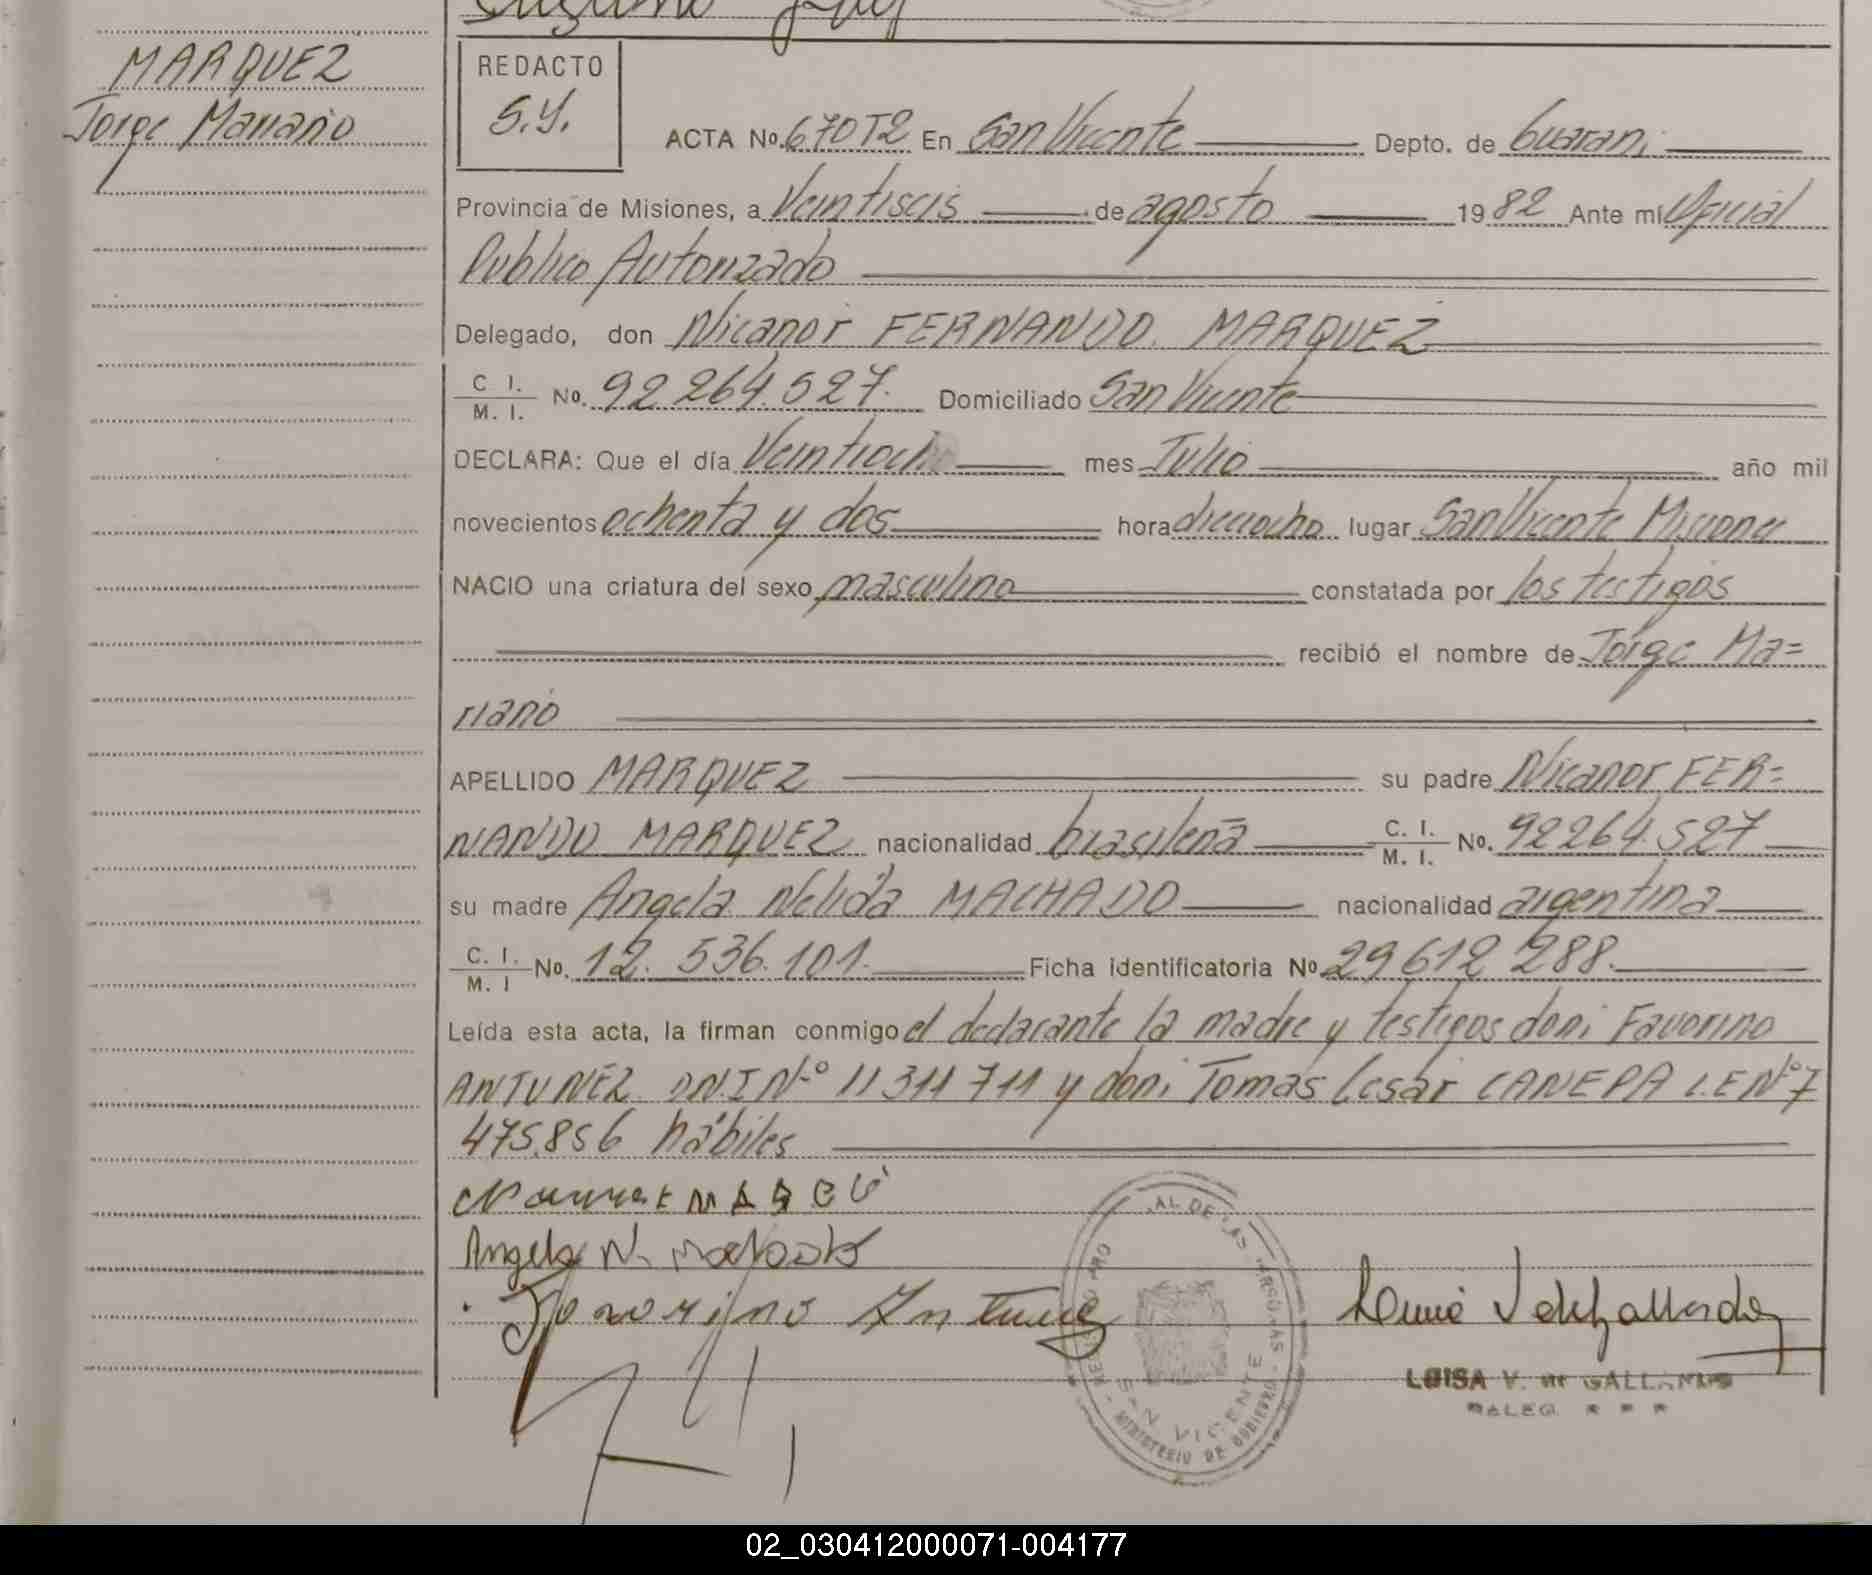 MARQUEZ
Jorge Mariano
REDACTO
S.Y.
ACTA No. 670T2 En San Vicente Depto. de Guarani
Provincia de Misiones, a Veintiseis de agosto 1982 Ante mi Oficial
Publico Autorizado
Delegado, don Nicanor FERNANDO MARQUEZ
C. I. / M. I. No. 92 264.527. Domiciliado San Vicente
DECLARA: Que el día Veintiocho mes Julio año mil
novecientos ochenta y dos hora dieciocho lugar San Vicente Misiones
NACIO una criatura del sexo masculino constatada por los testigos
recibió el nombre de Jorge Ma=
riano
APELLIDO MARQUEZ su padre Nicanor FER=
NANDO MARQUEZ nacionalidad brasileña C. I. / M. I. No. 92264.527
su madre Angela Nélida MACHADO nacionalidad argentina
C. I. / M. I No. 12. 536.101. Ficha identificatoria No 29612 288.
Leída esta acta, la firman conmigo el declarante la madre y testigos don: Favorino
ANTUNEZ DNI Nº 11 311 711 y don: Tomas Cesar CANEPA L.E Nº 7
475.856 hábiles
Angela N. Machado
Favorino Antunez
SAN VICENTE
MINISTERIO DE GOBIERNO
LUISA V. de GALLARDO
DELEG. R P P
02_030412000071-004177